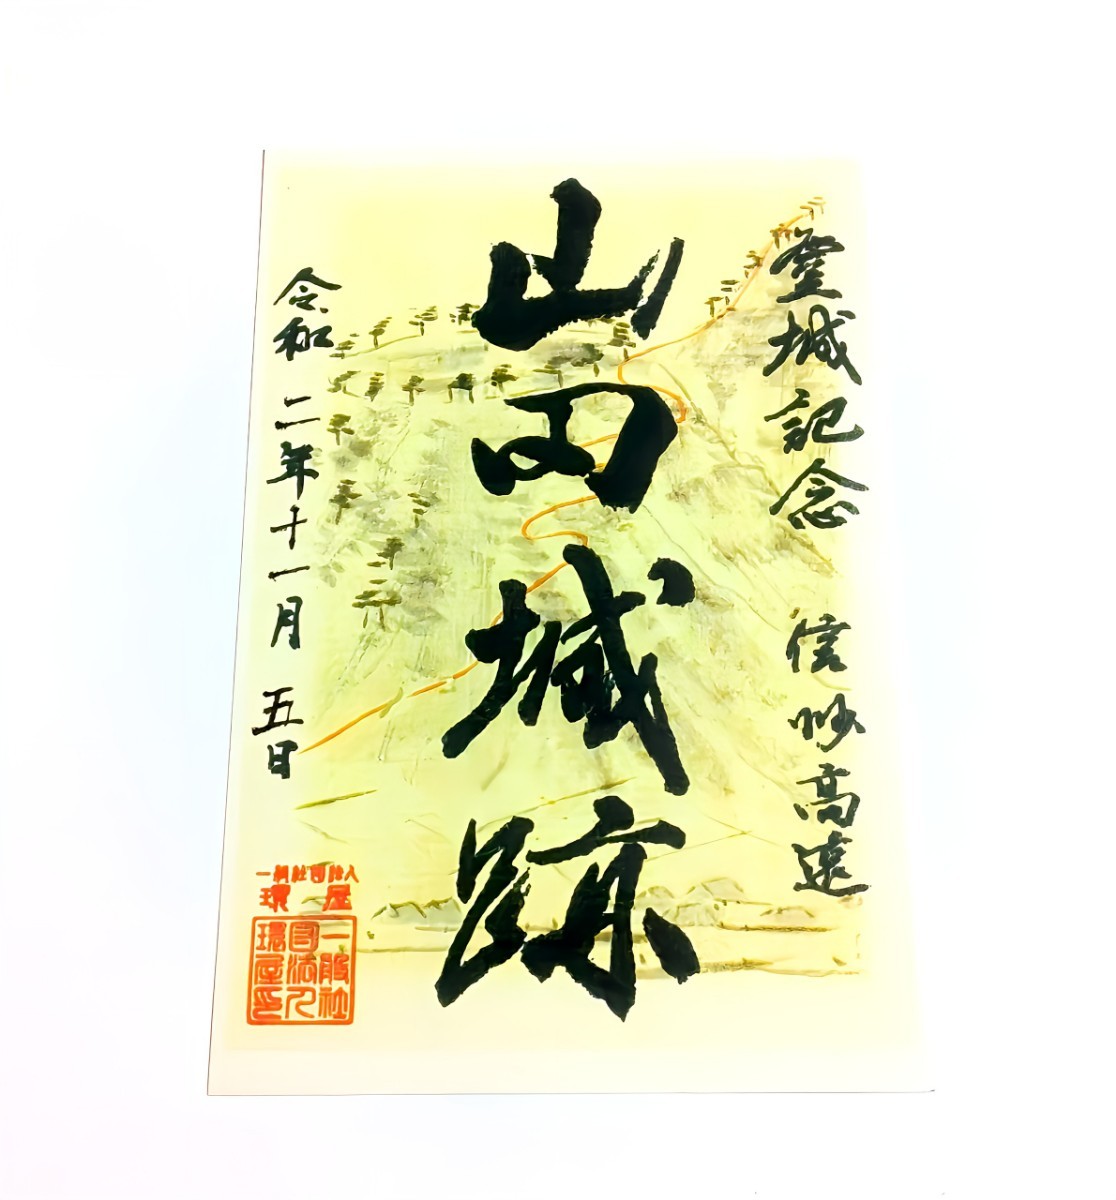 登城記念 信州高遠
山田城跡
令和二年十一月五日
一般社団法人
環屋
一般社
団法人
環屋印